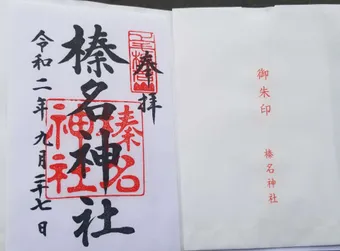 奉拝
榛名神社
榛名
神社
令和二年九月廿七日
御朱印
榛名神社